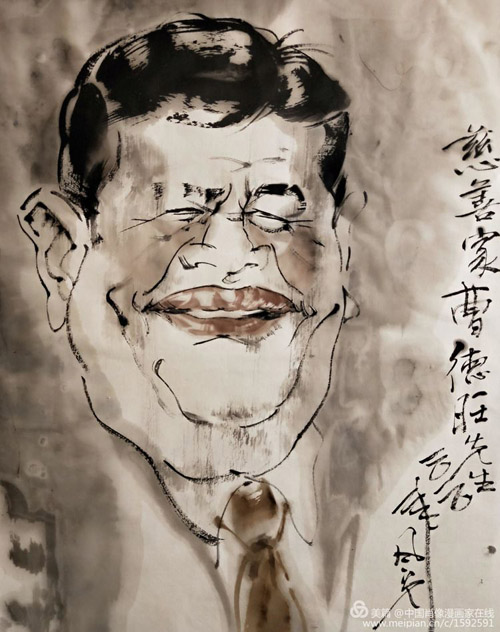 慈善家曹德旺先生
美篇 @中国肖像漫画家在线
www.meipian.cn/c/1592591